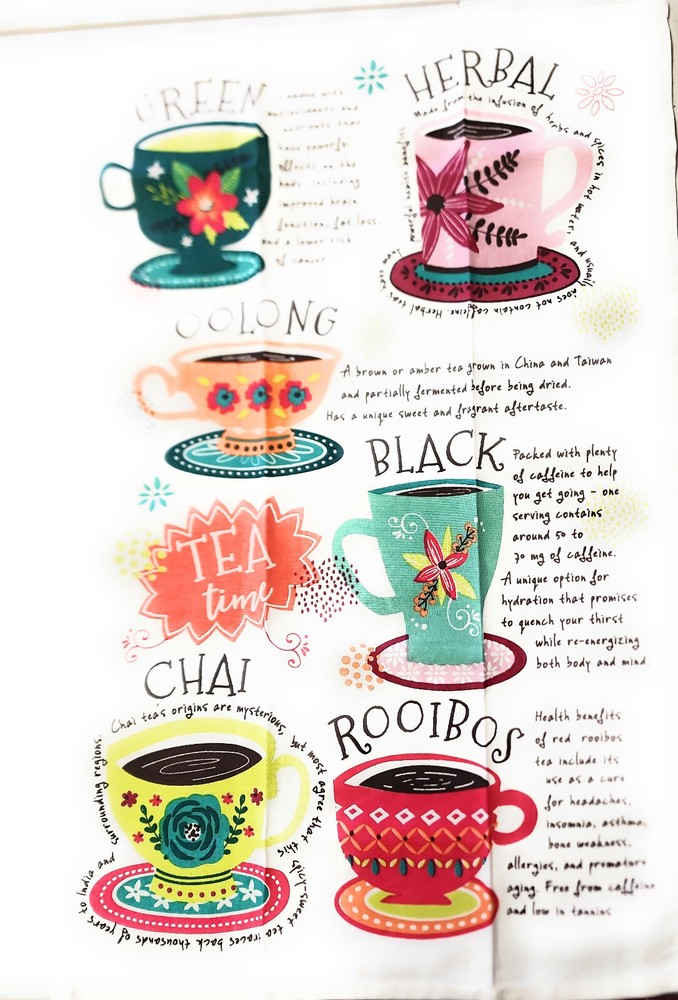 GREEN
Loaded with
antioxidants and
nutrients that
have powerful
effects on the
body, including
improved brain
function, fat loss,
and a lower risk
of cancer
HERBAL
Made from the infusion of herbs and spices in hot water, and usually does not contain caffeine. Herbal teas have many powerful health benefits
OOLONG
A brown or amber tea grown in China and Taiwan
and partially fermented before being dried.
Has a unique sweet and fragrant aftertaste.
BLACK
Packed with plenty
of caffeine to help
you get going - one
serving contains
around 50 to
70 mg of caffeine.
A unique option for
hydration that promises
to quench your thirst
while re-energizing
both body and mind.
TEA
time
CHAI
Chai tea's origins are mysterious, but most agree that this spicy-sweet tea traces back thousands of years to India and surrounding regions.
ROOIBOS
Health benefits
of red rooibos
tea include its
use as a cure
for headaches,
insomnia, asthma,
bone weakness,
allergies, and premature
aging. Free from caffeine
and low in tannins